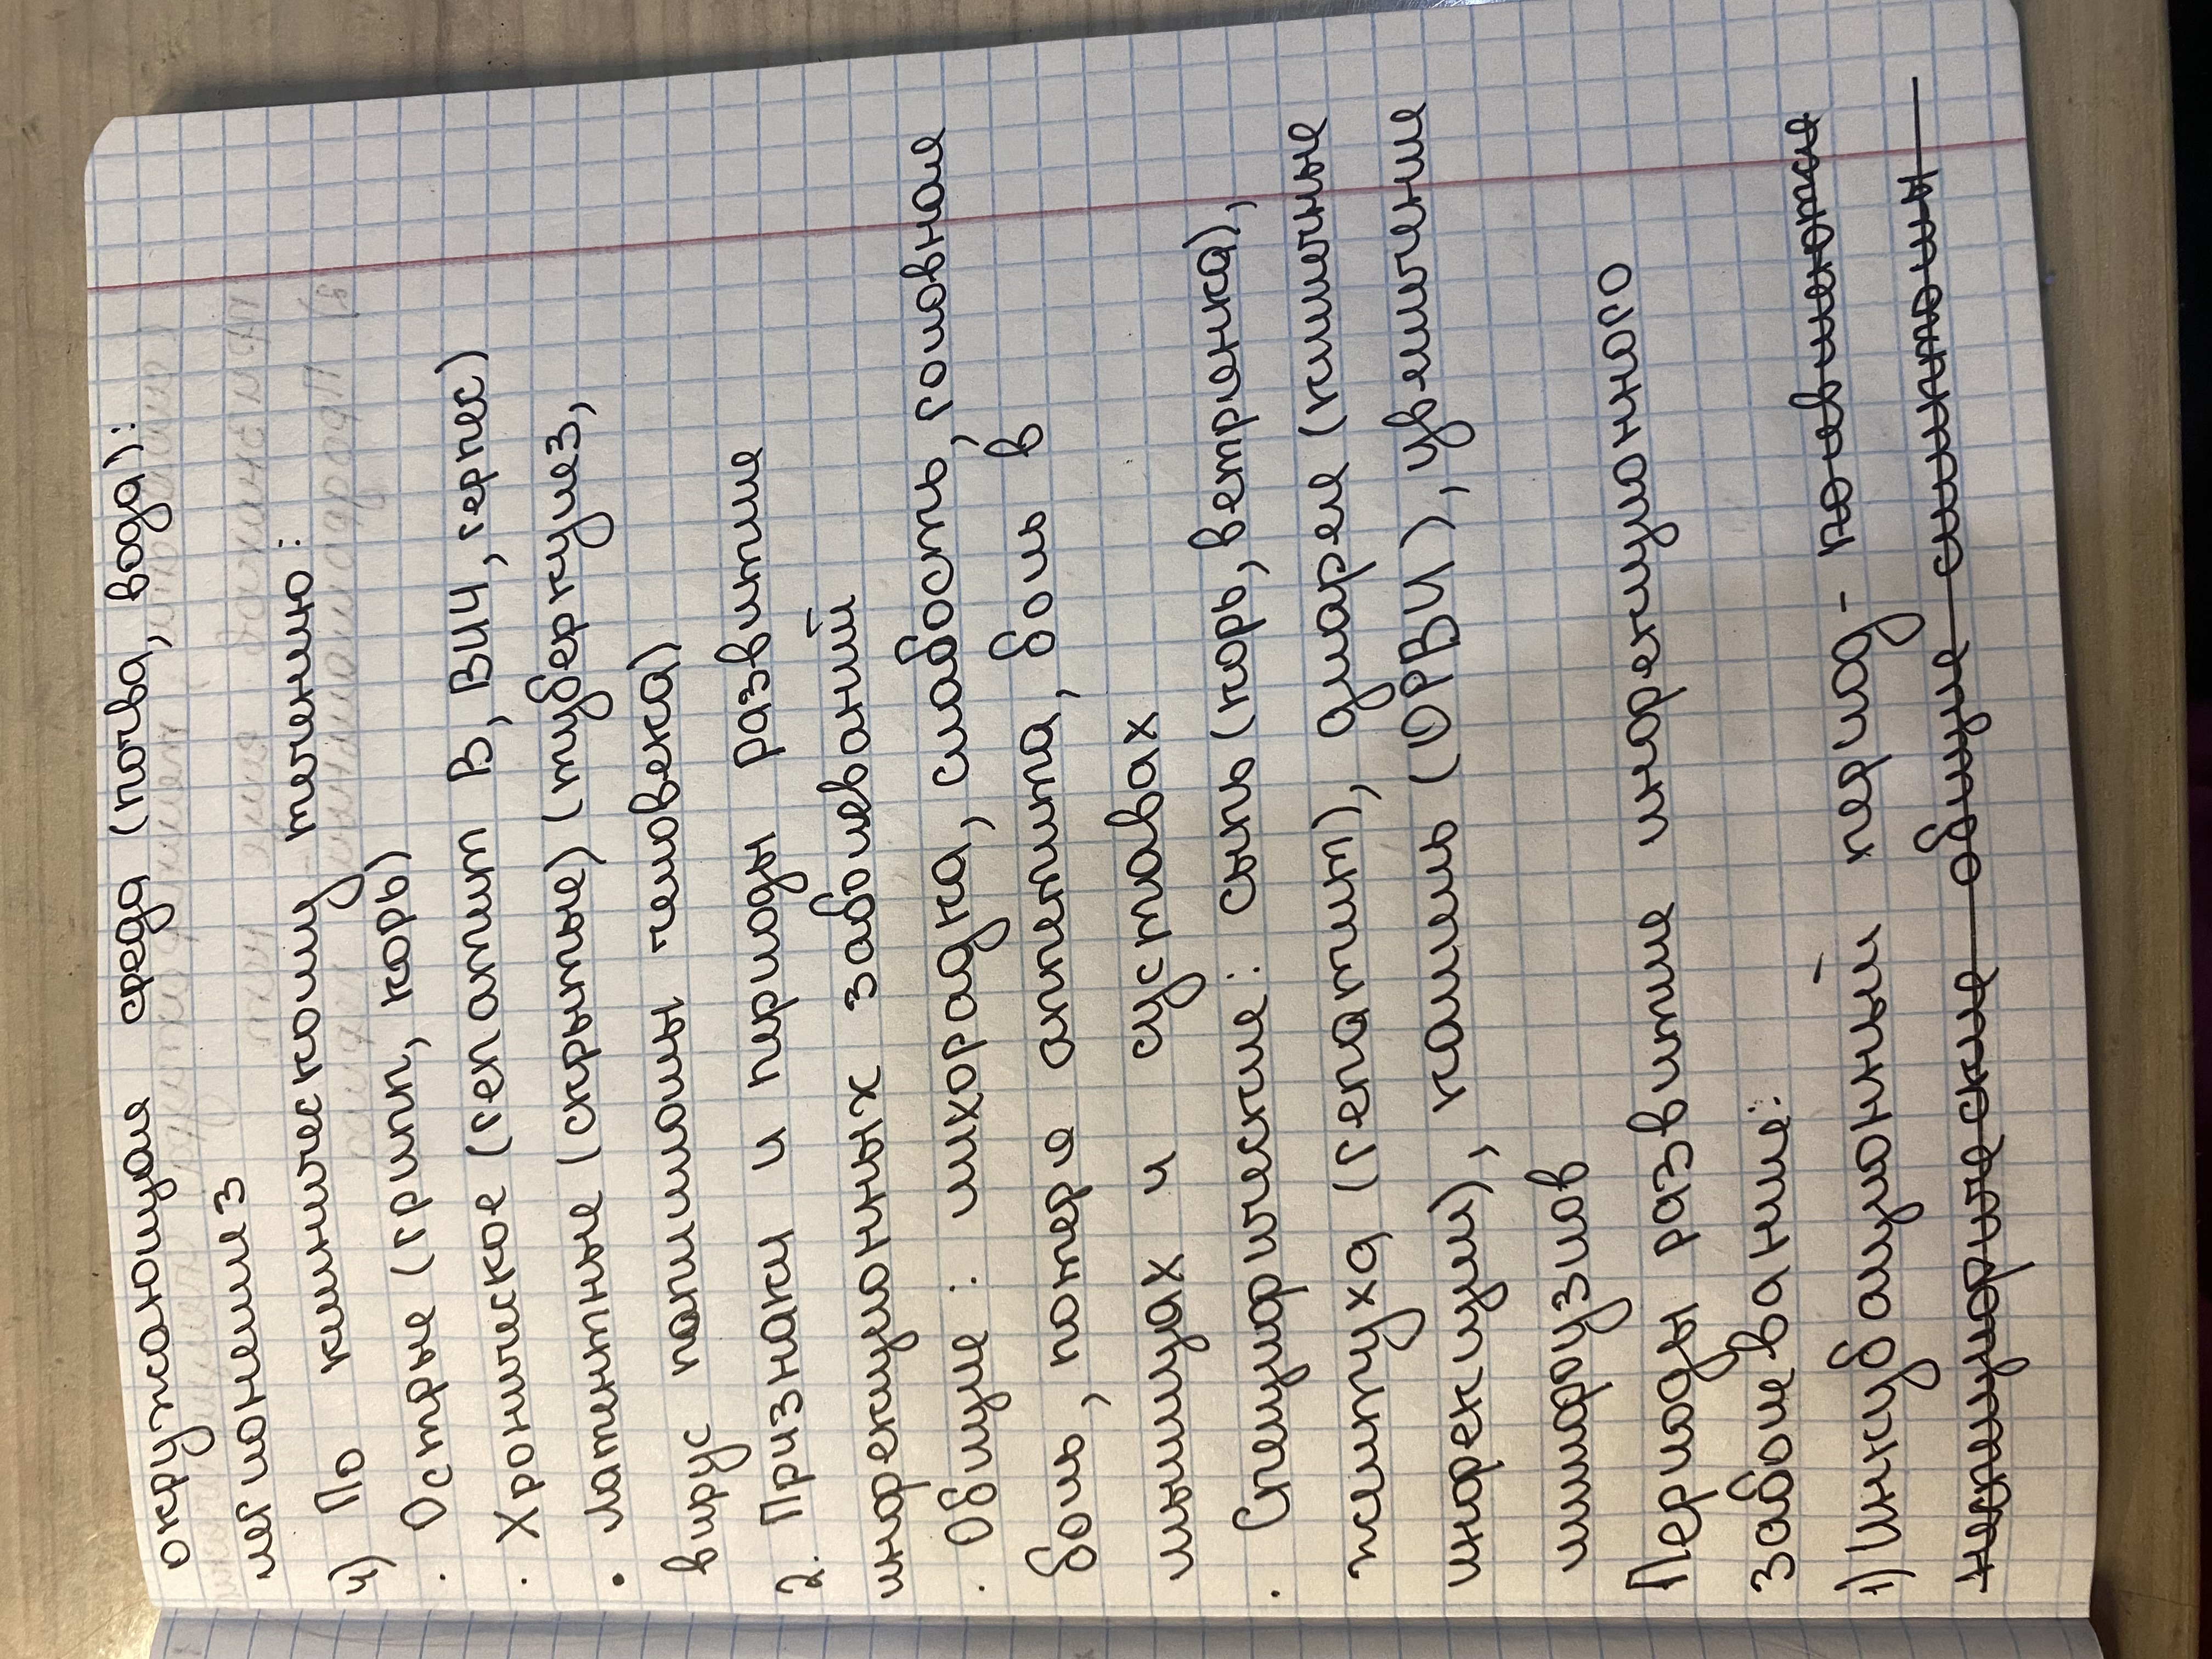 окружающая среда (почва, вода):
легионеллез
4) По клиническому течению:
· Острые (грипп, корь)
· Хроническое (гепатит B, ВИЧ, герпес)
• латентные (скрытые) (туберкулез,
вирус папилломы человека)
2. Признаки и периоды развитие
инфекционных заболеваний
· Общие : лихорадка, слабость, головная
боль, потеря аппетита, боль в
мышцах и суставах
· Специфические: сыпь (корь, ветрянка),
желтуха (гепатит), диарея (кишечные
инфекции), кашель (ОРВИ), увеличение
лимфоузлов
Периоды развитие инфекционного
заболевание:
1) Инкубационный период - появляются
неспецифические общие симптомы